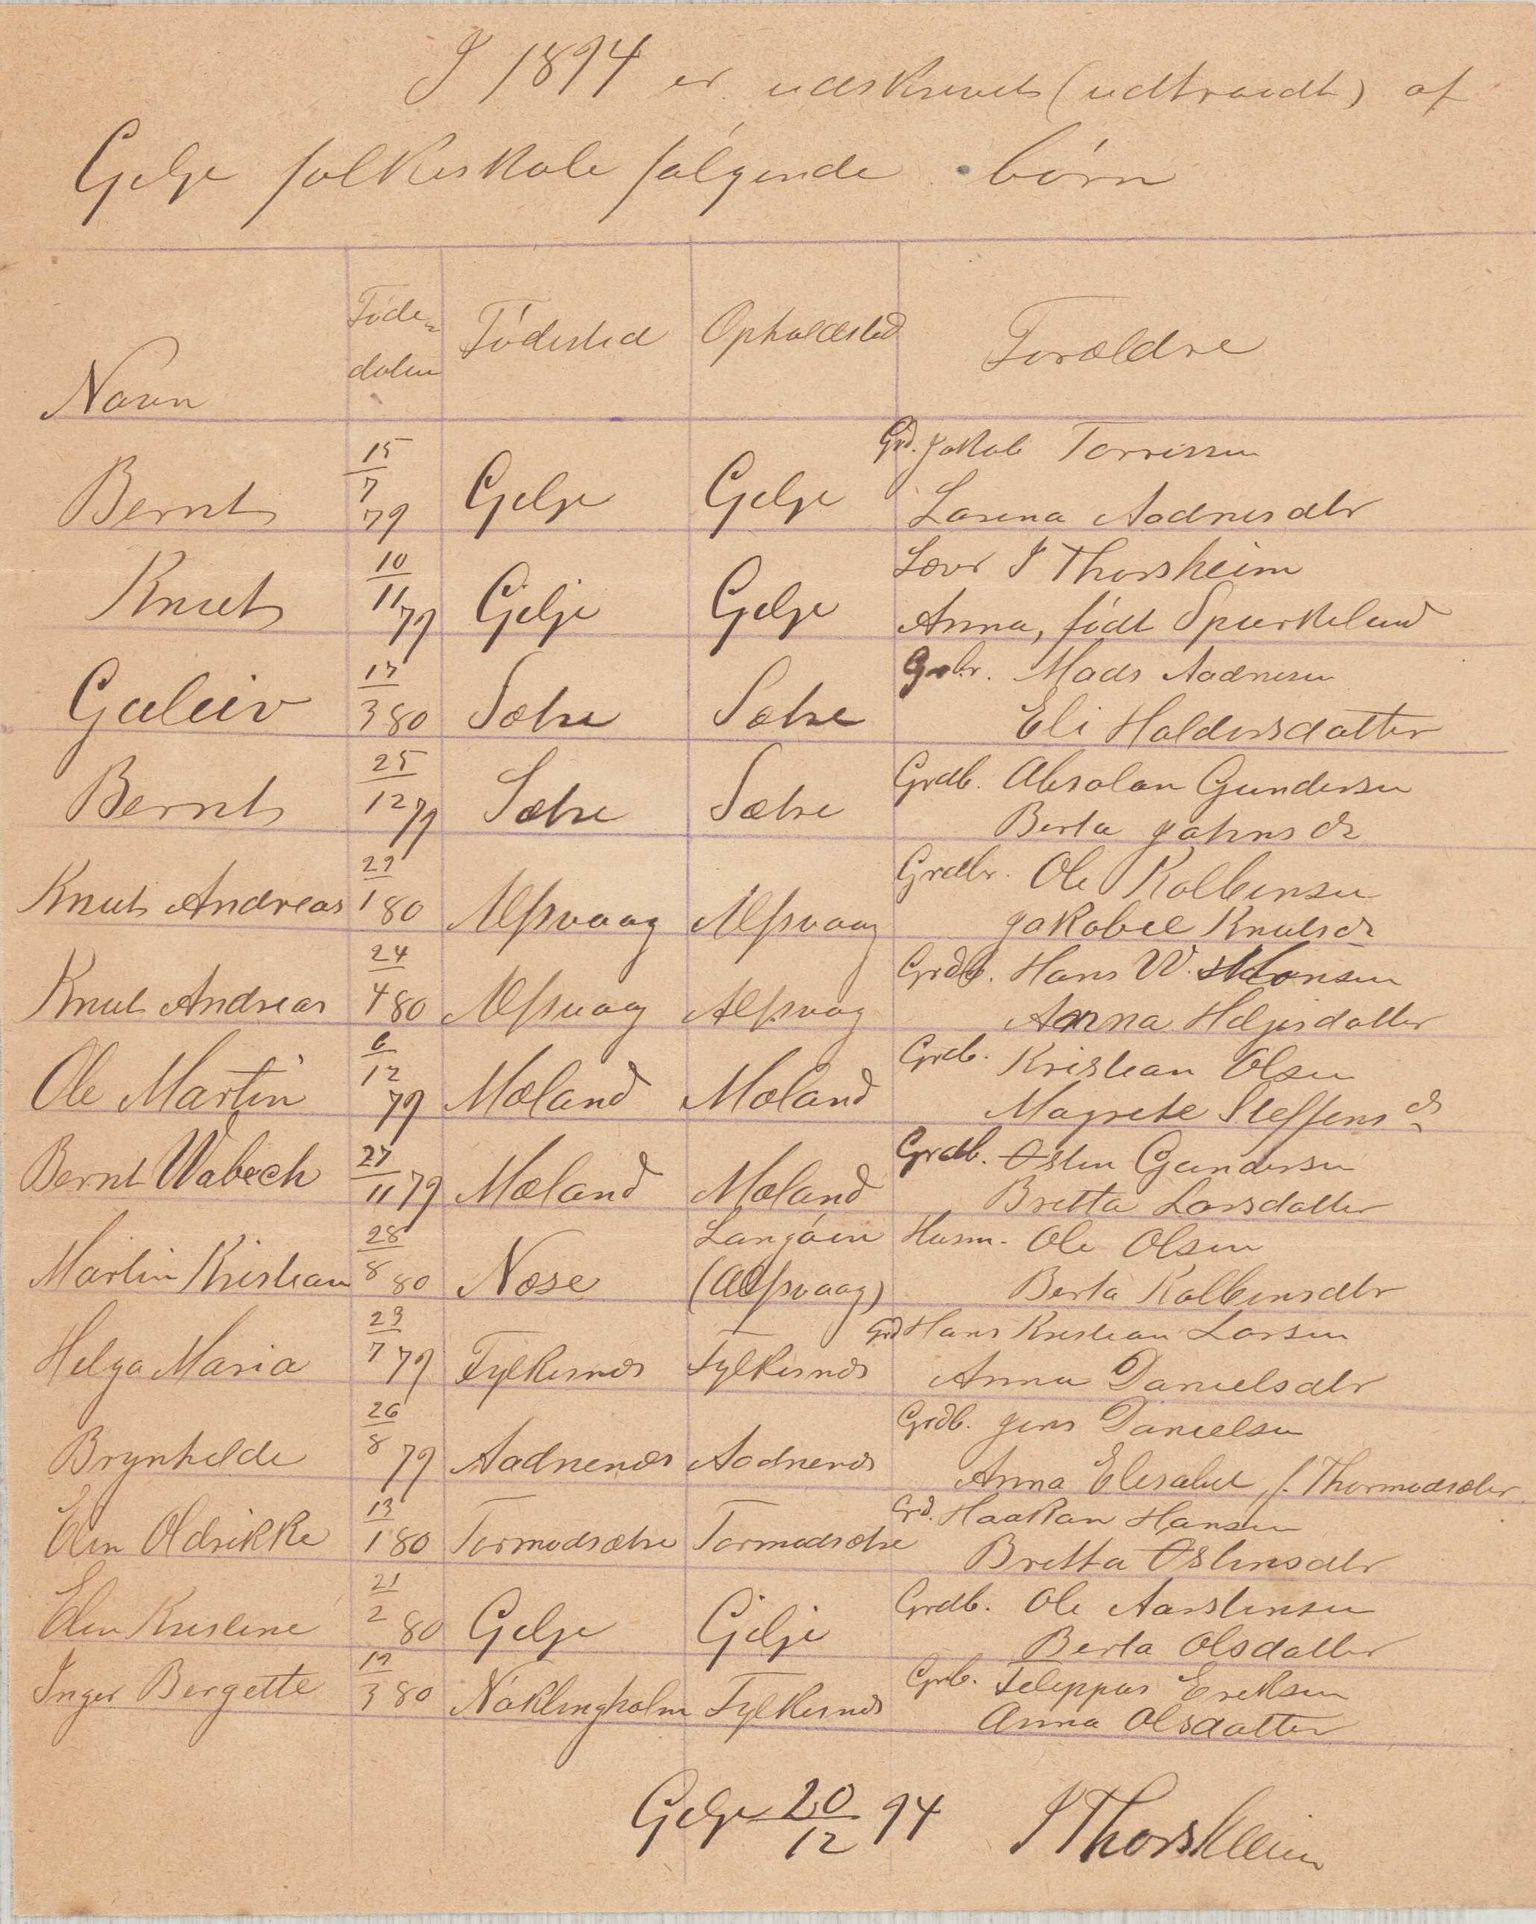 I 1894 er udskrevet (udtraadt) af
Gelje folkeskole følgende børn
Navn Føde-datum Fødested Opholdsted Forældre
Bernt 15/7 79 Gelje Gelje Grd. Jakob Torrissen
Lasena Aadnesdtr
Knut 10/11 79 Gilje Gelje Lærer I Thorsheim
Anna, født Spurkeland
Guleiv 17/3 80 Sætre Sætre Grbr. Mads Aadnesen
Eli Haldorsdatter
Bernt 25/12 79 Sætre Sætre Grdb. Absolon Gundersen
Berta Johnsdr
Knut Andreas 29/1 80 Alfsvaag Alfsvaag Grdbr. Ole Kolbensen
Jakobee Knutsdr
Knut Andreas 24/4 80 Alfsvaag Alfsvag Grdb. Hans W. Monsen
Anna Heljesdatter
Ole Martin 6/12 79 Mæland Mæland Grdb. Kristian Olsen
Magrete Steffensdr
Bernt Wabech 27/11 79 Mæland Mæland Grdb. Østen Gundersen
Britta Larsdatter
Martin Kristian 28/8 80 Næse Langøen (Alfsvaag) Husm. Ole Olsen
Berta Kolbensdtr
Helga Maria 29/7 79 Fylkesnæs Fylkesnæs Grd Hans Kristian Larsen
Anna Danielsdtr
Brynhilde 26/8 79 Aadnenæs Aadnenæs Grdb. Jens Danielsen
Anna Elisabet f. Thormodsæter
Elen Oldrikke 13/1 80 Tormodsætre Tormodsætre Grd. Haakon Hansen
Britta Østensdtr
Elen Kristine 21/2 80 Gelje Gilje Grdb. Ole Aarstensen
Berta Olsdatter
Inger Bergette 19/3 80 Nøklingholm Fylkesnæs Grb. Feleppus Eriksen
Anna Olsdatter
Gelje 20/12 94 I Thorsheim